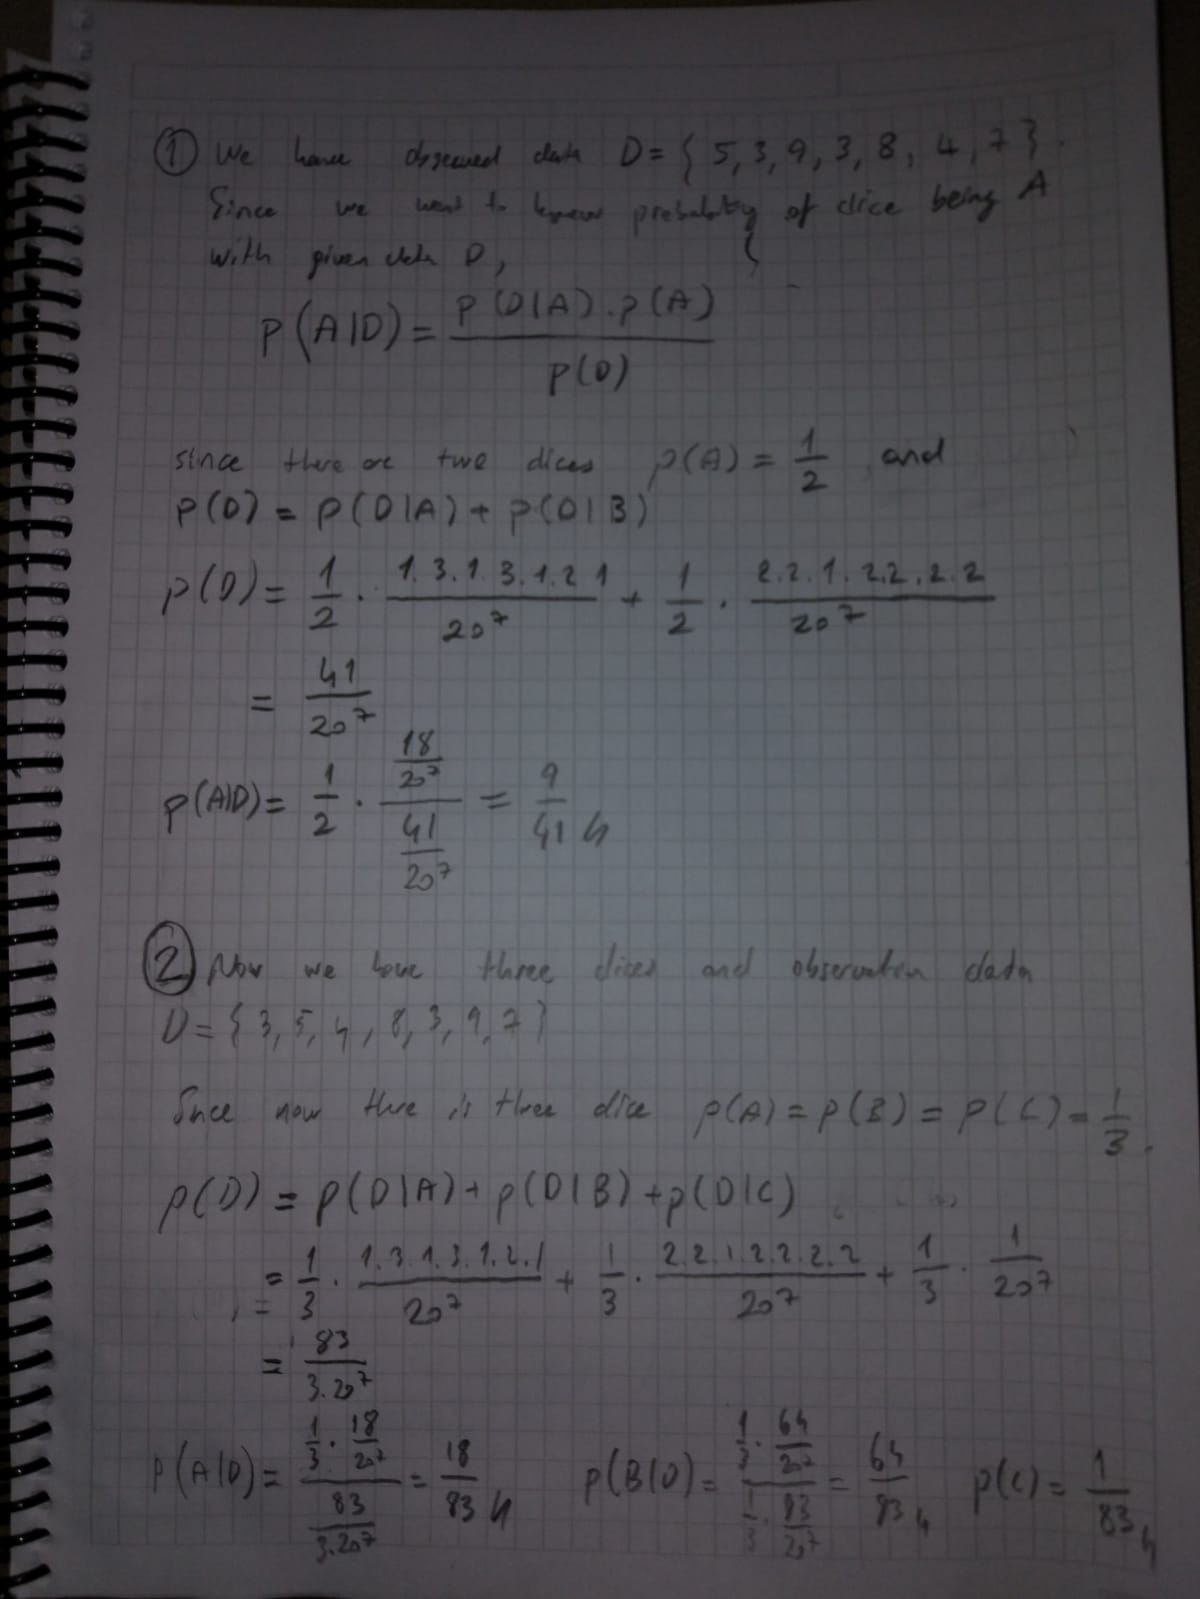 ① We have observed data D = { 5, 3, 9, 3, 8, 4, 7 }.
Since we want to know probability of dice being A
with given data D,
p(A|D) = p(D|A) . p(A) / p(D)
since there are two dices p(A) = 1/2 and
p(D) = p(D|A) + p(D|B)
p(D) = 1/2 . 1.3.1.3.1.2.1 / 20^7 + 1/2 . 2.2.1.2.2.2.2 / 20^7
= 41 / 20^7
p(A|D) = 1/2 . (18/20^7) / (41/20^7) = 9/41
② Now we have three dices and observation data
D = { 3, 5, 4, 8, 3, 9, 7 }
Since now there is three dice p(A) = p(B) = p(C) = 1/3.
p(D) = p(D|A) + p(D|B) + p(D|C)
= 1/3 . 1.3.1.3.1.2.1 / 20^7 + 1/3 . 2.2.1.2.2.2.2 / 20^7 + 1/3 . 1/20^7
= 83 / 3.20^7
p(A|D) = (1/3 . 18/20^7) / (83/3.20^7) = 18/83 p(B|D) = (1/3 . 64/20^7) / (1/3 . 83/20^7) = 64/83 p(C) = 1/83